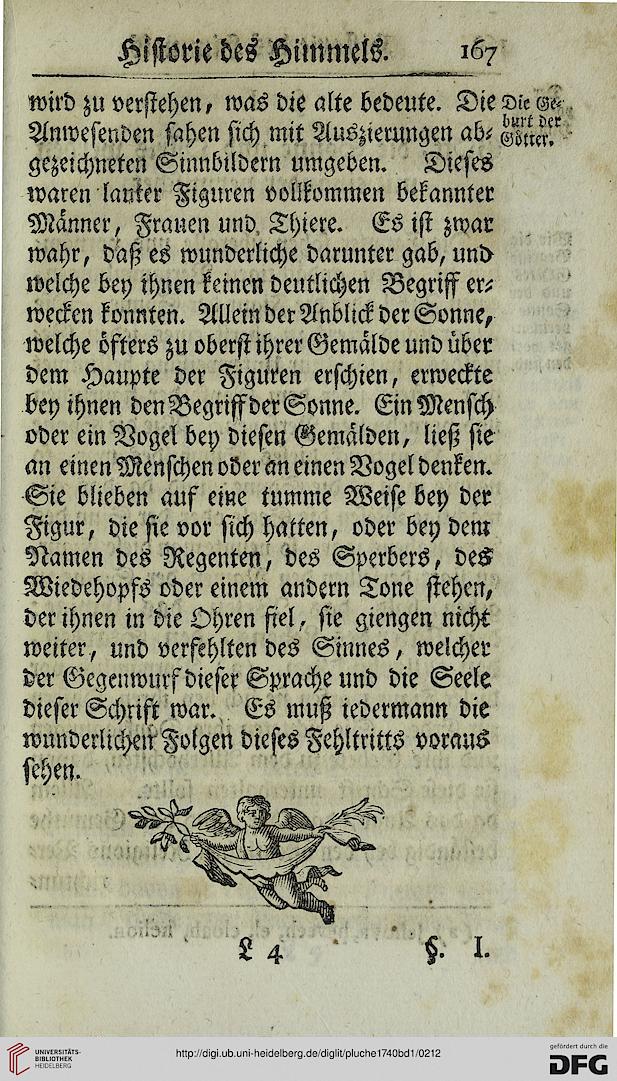 Historie des Himmels. 167
wird zu verstehen, was die alte bedeute. Die
Anwesenden sahen sich mit Auszierungen ab-
gezeichneten Sinnbildern umgeben. Dieses
waren lauter Figuren vollkommen bekannter
Männer, Frauen und Thiere. Es ist zwar
wahr, daß es wunderliche darunter gab, und
welche bey ihnen keinen deutlichen Begriff er-
wecken konnten. Allein der Anblick der Sonne,
welche öfters zu oberst ihrer Gemälde und über
dem Haupte der Figuren erschien, erweckte
bey ihnen den Begriff der Sonne. Ein Mensch
oder ein Vogel bey diesen Gemälden, ließ sie
an einen Menschen oder an einen Vogel denken.
Sie blieben auf eine tumme Weise bey der
Figur, die sie vor sich hatten, oder bey dem
Namen des Regenten, des Sperbers, des
Wiedehopfs oder einem andern Tone stehen,
der ihnen in die Ohren fiel, sie giengen nicht
weiter, und verfehlten des Sinnes, welcher
der Gegenwurf dieser Sprache und die Seele
dieser Schrift war. Es muß iedermann die
wunderlichen Folgen dieses Fehltritts voraus
sehen.
Die Ge-
burt der
Götter.
L 4 §. I.
UNIVERSITÄTS-
BIBLIOTHEK
HEIDELBERG
http://digi.ub.uni-heidelberg.de/diglit/pluche1740bd1/0212
gefördert durch die
DFG